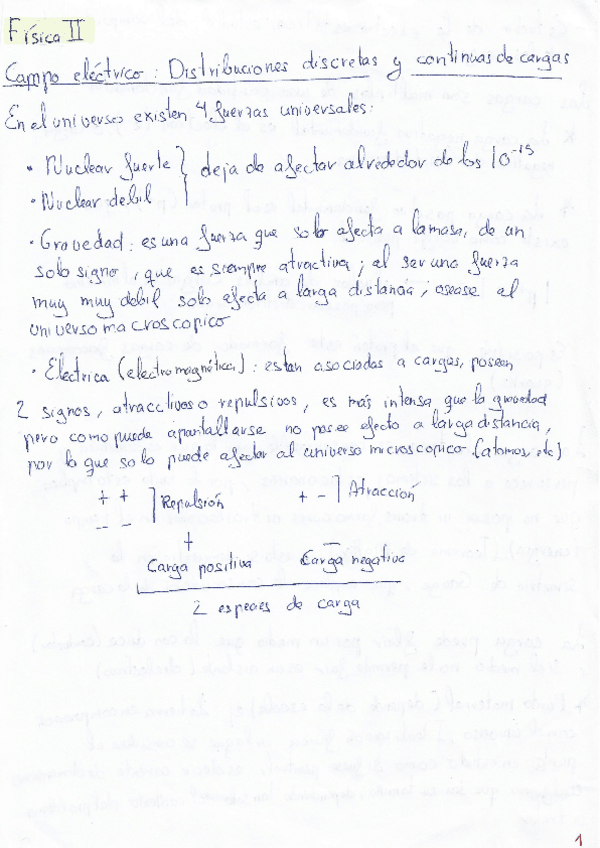 Física II
Campo eléctrico: Distribuciones discretas y continuas de cargas
En el universo existen 4 fuerzas universales:
• Nuclear fuerte } deja de afectar alrededor de los 10⁻¹⁵
• Nuclear debil
• Gravedad: es una fuerza que solo afecta a la masa, de un
solo signo, que es siempre atractiva; al ser una fuerza
muy muy debil solo afecta a larga distancia; osease al
universo macroscopico
• Electrica (electromagnética): estan asociadas a cargas, poseen
2 signos, atractivos o repulsivos, es más intensa que la gravedad
pero como puede apantallarse no posee efecto a larga distancia,
por lo que solo puede afectar al universo microscopico. (atomos, etc)
+ + ] Repulsión + - ] Atracción
- -
+ −
Carga positiva Carga negativa
2 especies de carga
1